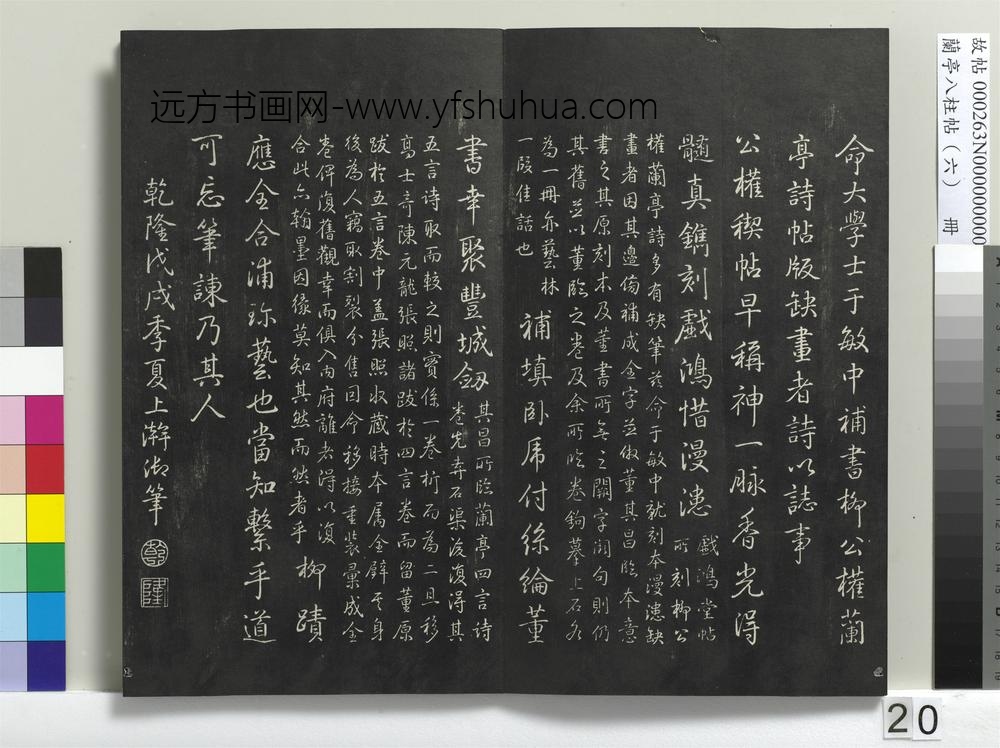 命大學士于敏中補書柳公權蘭
亭詩帖版缺畫者詩以誌事
公權稧帖早稱神一脉香光得
髓真鐫刻戲鴻惜漫漶 戲鴻堂帖
所刻柳公
權蘭亭詩多有缺筆茲命于敏中就刻本漫漶缺
畫者因其邊傍補成全字並倣董其昌臨本意
書之其原刻本及董書所無之闕字闕句則仍
其舊並以董臨之卷及余所臨卷鉤摹上石各
為一冊亦藝林
一段佳話也
補填卧席付絲綸董
書幸聚豐城劒 其昌所臨蘭亭四言詩
卷先弆石渠後復得其
五言詩取而較之則實係一卷析而為二且移
高士奇陳元龍張照諸跋於四言卷而留董原
跋於五言卷中盖張照收藏時本属全璧其身
後為人竊取割裂分售因命移接重装彙成全
卷俾復舊觀幸而俱入内府離者得以復
合此亦翰墨因緣莫知其然而然者乎
柳蹟
應全合浦珎藝也當知繫乎道
可忘筆諫乃其人
乾隆戊戌季夏上澣御筆
乾
隆
远方书画网-www.yfshuhua.com
故帖 000263N000000000
蘭亭八柱帖（六） 冊
20